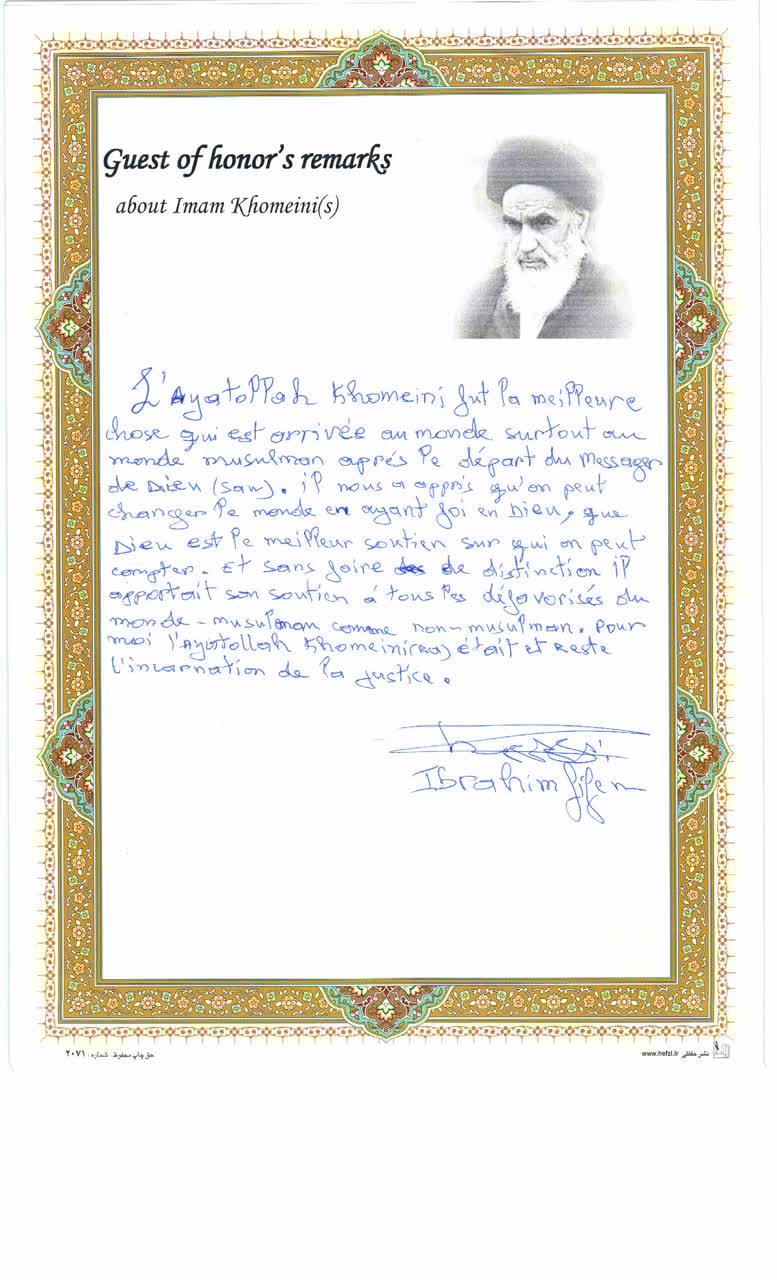 Guest of honor's remarks
about Imam Khomeini(s)
L'Ayatollah Khomeini fut la meilleure
chose qui est arrivée au monde surtout au
monde musulman aprés le départ du Messager
de Dieu (saw). il nous a appris qu'on peut
changer le monde en ayant foi en Dieu, que
Dieu est le meilleur soutien sur qui on peut
compter. Et sans faire de distinction il
apportait son soutien á tous les défavorisés du
monde - musulman comme non-musulman. Pour
moi l'Ayatollah Khomeini(RA) était et reste
l'incarnation de la justice.
Ibrahim
حق چاپ محفوظ شماره: ۲۰۷۱
www.hefzi.ir نشر حفظی